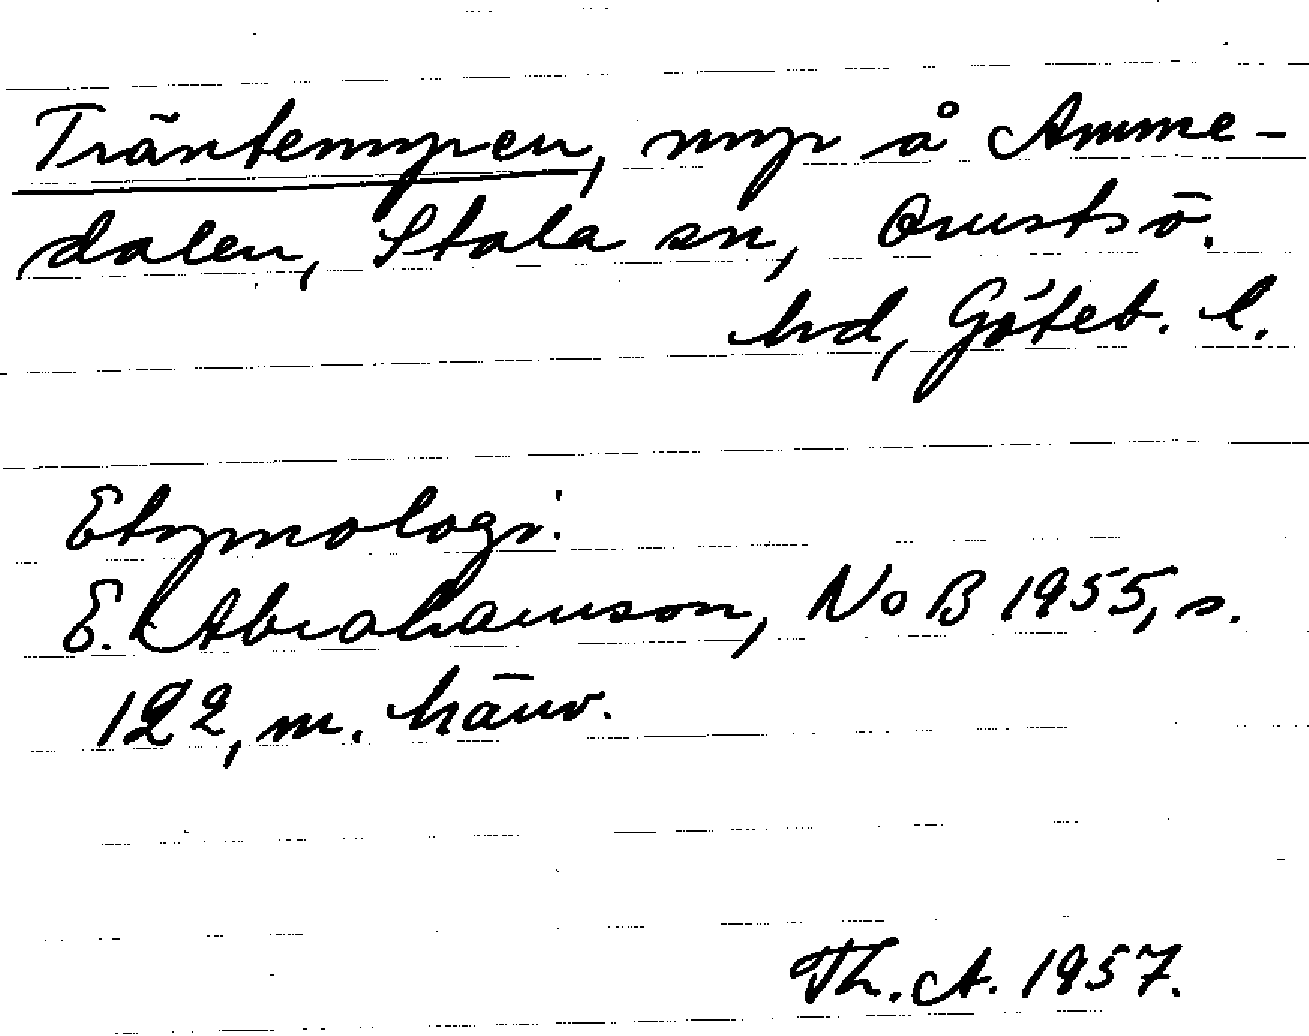 Träntemypen, myr å Amme-
dalen, Stala sn, Orusts ö.
hd, Göteb. l.
Etymologi:
E. Abrahamson, NoB 1955, s.
122, m. hänv.
Th. A. 1957.